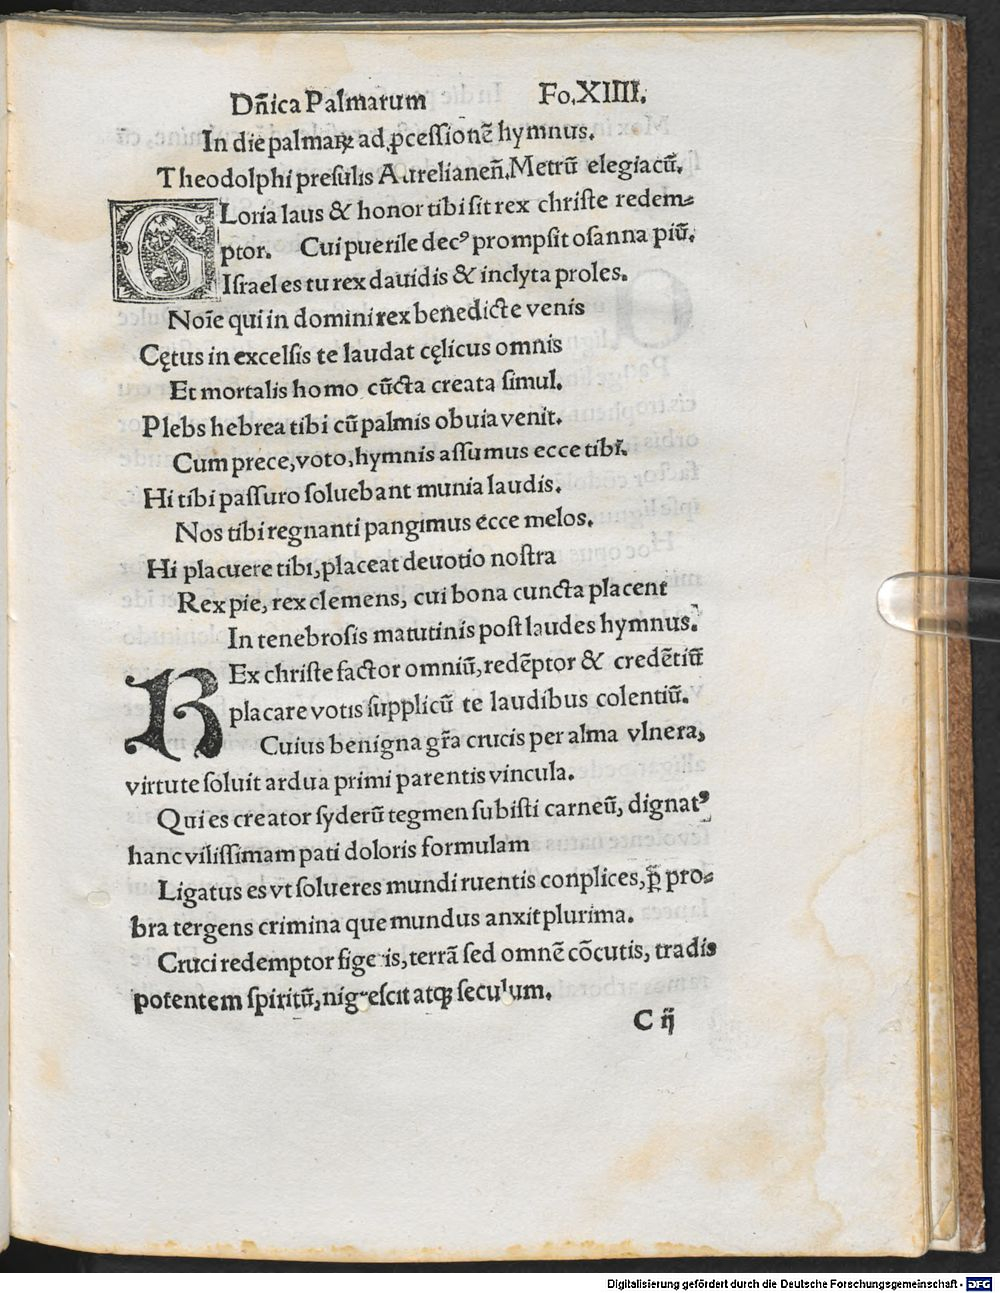 Dn̄ica Palmarum Fo.XIIII.
In die palmaꝝ ad ꝓcessionē hymnus.
Theodolphi presulis Aurelianen̄.Metrū elegiacū.
GLoria laus & honor tibi sit rex christe redem⸗
ptor. Cui puerile decꝰ prompsit osanna piū.
Israel es tu rex dauidis & inclyta proles.
Noīe qui in domini rex benedicte venis
Cętus in excelsis te laudat cęlicus omnis
Et mortalis homo cūcta creata simul.
Plebs hebrea tibi cū palmis obuia venit.
Cum prece, voto, hymnis assumus ecce tibi.
Hi tibi passuro soluebant munia laudis.
Nos tibi regnanti pangimus ecce melos.
Hi placuere tibi, placeat deuotio nostra
Rex pie, rex clemens, cui bona cuncta placent
In tenebrosis matutinis post laudes hymnus.
REx christe factor omniū, redēptor & credētiū
placare votis supplicū te laudibus colentiū.
Cuius benigna gr̄a crucis per alma vlnera,
virtute soluit ardua primi parentis vincula.
Qui es creator syderū tegmen subisti carneū, dignatꝰ
hanc vilissimam pati doloris formulam
Ligatus es vt solueres mundi ruentis conplices, ꝑ pro⸗
bra tergens crimina que mundus anxit plurima.
Cruci redemptor figeris, terrā sed omnē cōcutis, tradis
potentem spiritū, nigrescit atqꝫ seculum.
C ij
Digitalisierung gefördert durch die Deutsche Forschungsgemeinschaft - DFG